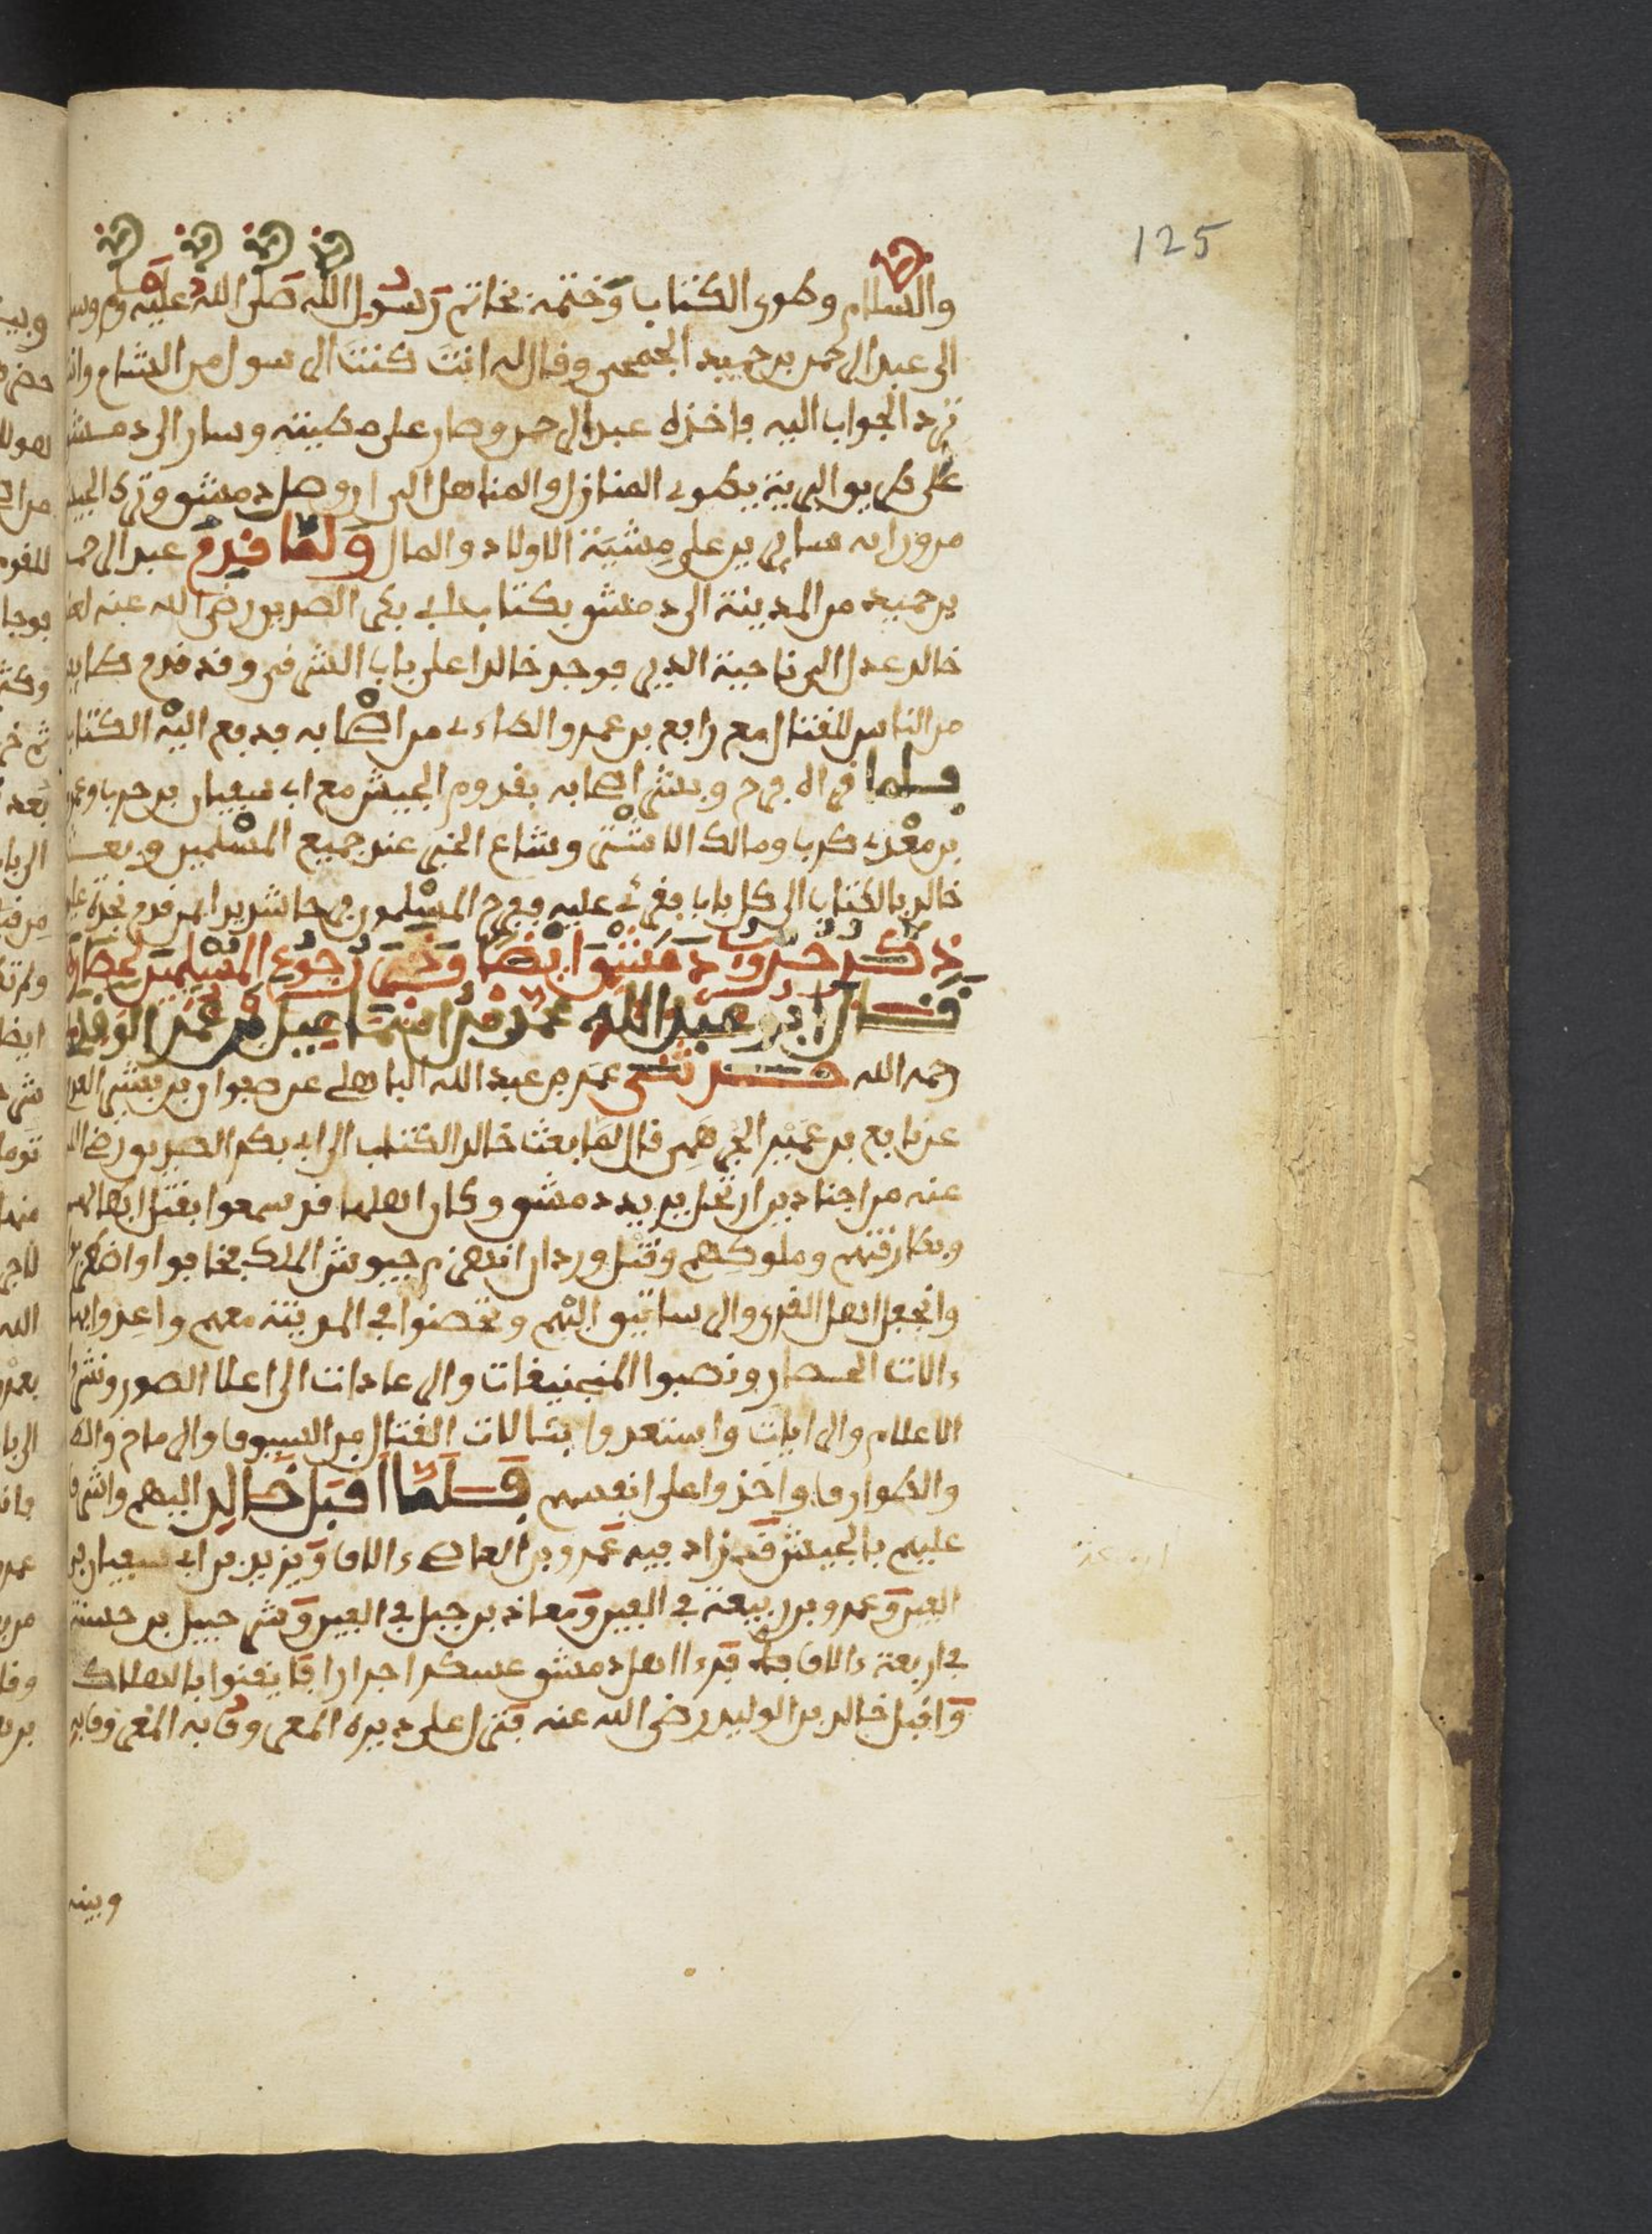 125
والسلام وطوى الكتاب وختمه بخاتم رسول الله صلى الله عليه وسلم
الى عبد الرحمن بن حميد الجمحي وقال له انت كنت الرسول من الشام وانت
ترد الجواب اليه فاخذه عبد الرحمن وصار على مطيته وسار الى دمشق
على طريق البرية يطوي المنازل والمناهل الى ان وصل دمشق وترك الجيش
من ورائه سايرين على مشية الاولاد والمال ولما قدم عبد الرحمن
بن حميد من المدينة الى دمشق بكتاب ابي بكر الصديق رضي الله عنه
خالد عدل الى ناحية الدير فوجد خالدا على باب الشرقي وقد قدم
من الناس للقتال مع رافع بن عمرو الطاءي من اصحابه فدفع اليه الكتاب
فلما قراه فرح وبشر اصحابه بقدوم الجيش مع ابي سفيان بن حرب وعمرو
بن معدي كرب ومالك الاشتر وشاع الخبر عند جميع المسلمين وبعث
خالد بالكتاب الى كل باب فقرئ عليه ففرح المسلمون
ذكر حروب دمشق ايضا وخبر رجوع المسلمين
قال ابو عبد الله محمد بن عمر الواقدي
رحمه الله حدثني عمر بن عبد الله الباهلي عن صفوان بن بشر
عن نافع بن عمير الجرهمي قال لما بعث خالد الكتاب الى ابي بكر الصديق رضي الله
عنه من اجنادين ارتحل يريد دمشق وكان اهلها قد سمعوا بقتل ابطالهم
وبطارقتهم وملوكهم وقتل وردان انهزم جيوش الملك فخافوا
وانجفل اهل القرى والرساتيق اليهم وتحصنوا في المدينة معهم واعدوا
ءالات الحصار ونصبوا المنجنيقات والرعادات الى اعلا الصور
الاعلام والرايات واستعدوا بئالات القتال من السيوف والرماح
والطوارف واخذوا على انفسهم فلما اقبل خالد اليهم واشرف
عليهم بالجيش قد زاد فيه عمرو بن العاص ءالاف ويزيد بن ابي سفيان
الفين وعمرو بن ربيعة في الفين ومعاذ بن جبل في الفين وشرحبيل بن حسنة
في اربعة ءالاف اهل دمشق عسكرا جرارا فايقنوا بالهلاك
واقبل خالد بن الوليد رضي الله عنه فنزل على ديره المعروف به
وبينه